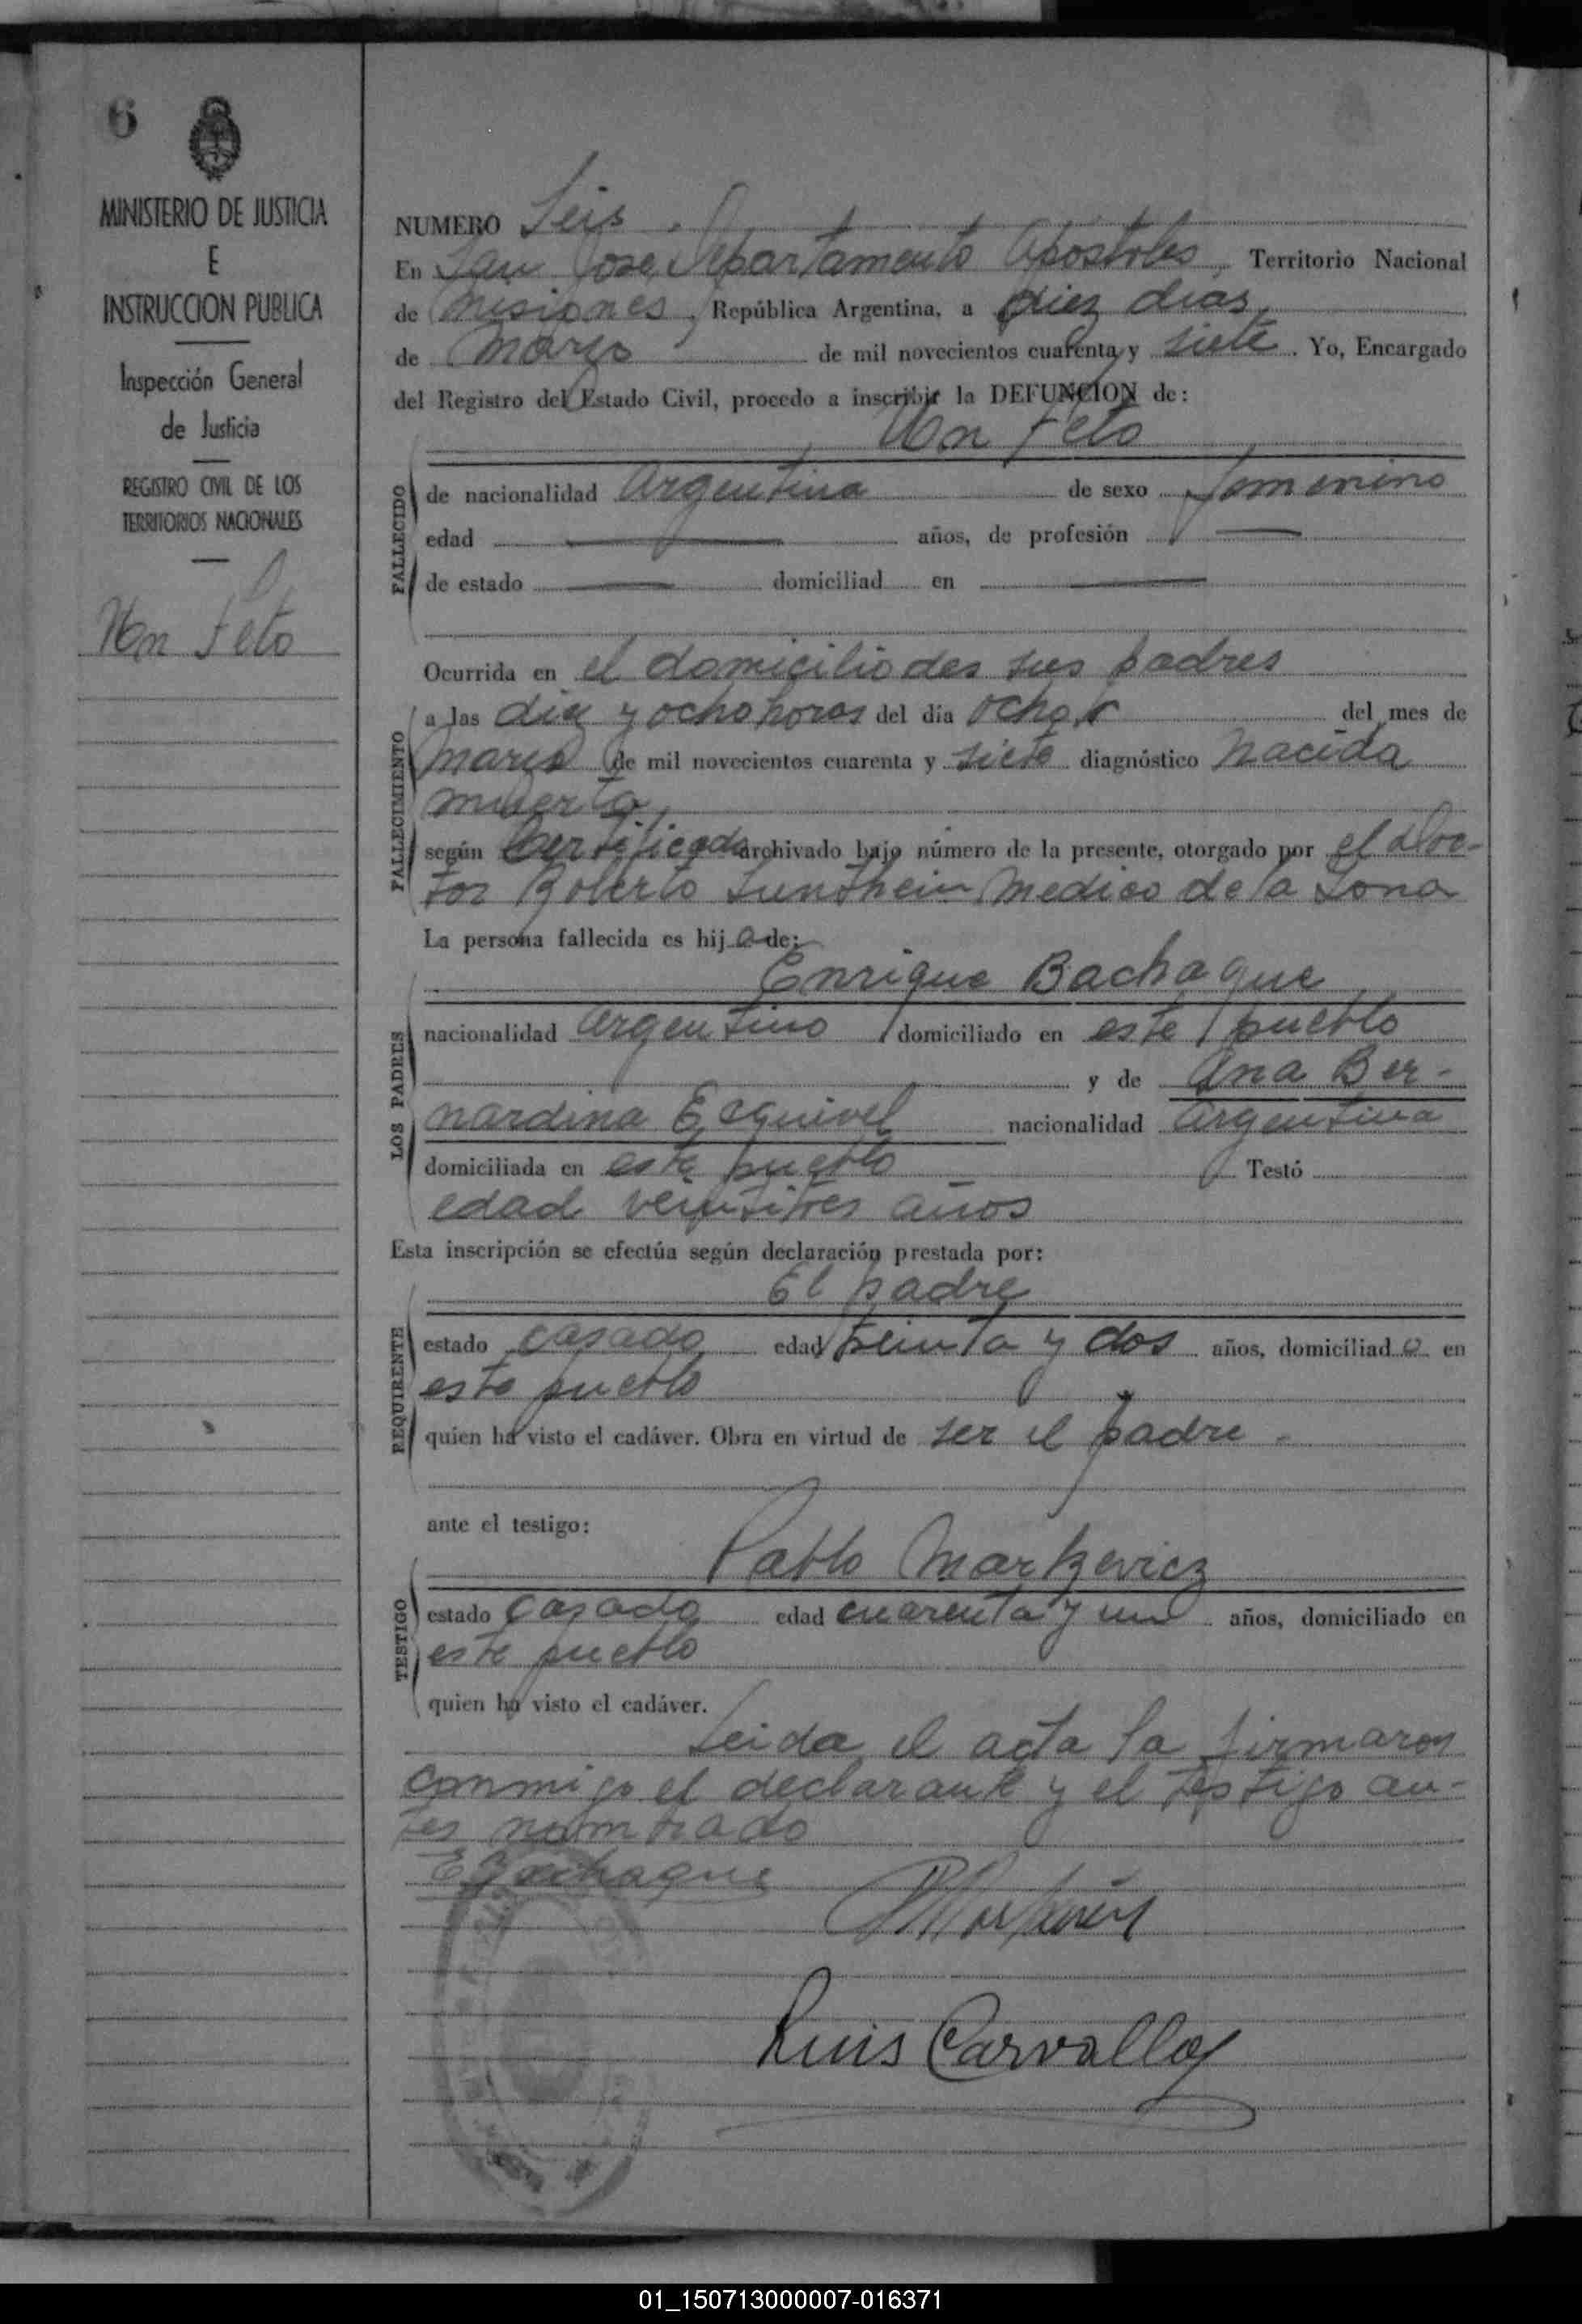 6
MINISTERIO DE JUSTICIA
E
INSTRUCCION PUBLICA
Inspección General
de Justicia
REGISTRO CIVIL DE LOS
TERRITORIOS NACIONALES
Un Feto
NUMERO Seis.
En San José, Departamento Apóstoles, Territorio Nacional
de Misiones, República Argentina, a diez dias
de Marzo de mil novecientos cuarenta y siete. Yo, Encargado
del Registro del Estado Civil, procedo a inscribir la DEFUNCION de:
Un Feto
FALLECIDO
de nacionalidad Argentina de sexo femenino
edad años, de profesión
de estado domiciliad en
Ocurrida en el domicilio des sus padres
FALLECIMIENTO
a las diez y ocho horas del día ocho del mes de
marzo de mil novecientos cuarenta y siete diagnóstico nacida
muerta
según certificado archivado bajo número de la presente, otorgado por el Doc-
tor Roberto Sunthein medico de la Zona
La persona fallecida es hij a de:
Enrique Bachaque
LOS PADRES
nacionalidad Argentino domiciliado en este pueblo
y de Ana Ber-
nardina Esquivel nacionalidad Argentina
domiciliada en este pueblo Testó
edad veintitres años
Esta inscripción se efectúa según declaración prestada por:
El padre
REQUIRENTE
estado casado edad treinta y dos años, domiciliad o en
este pueblo
quien ha visto el cadáver. Obra en virtud de ser el padre.
ante el testigo:
Pablo Markevicz
TESTIGO
estado casado edad cuarenta y un años, domiciliado en
este pueblo
quien ha visto el cadáver.
Leida el acta la firmaron
conmigo el declarante y el testigo an-
tes nombrado
E Bachaque
Luis Carvallo
01_150713000007-016371